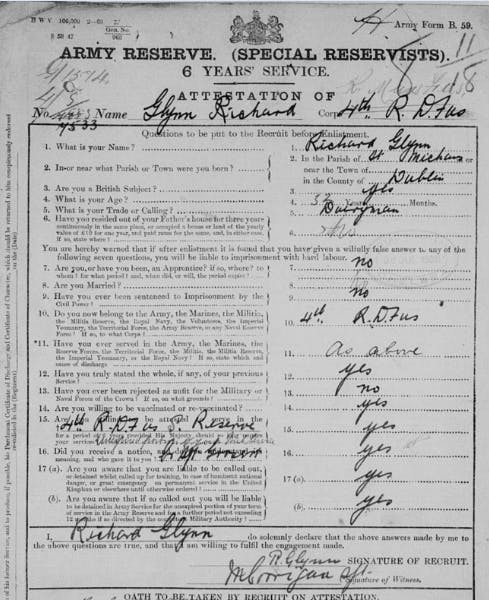 Army Form B. 59.
ARMY RESERVE. (SPECIAL RESERVISTS).
6 YEARS' SERVICE.
ATTESTATION OF
No. 7533 Name Glynn Richard Corps 4th R. D. Fus
Questions to be put to the Recruit before Enlistment.
1. What is your Name? Richard Glynn
2. In or near what Parish or Town were you born? In the Parish of St Michans
near the Town of
in the County of Dublin
3. Are you a British Subject? yes
4. What is your Age? Years Months.
5. What is your Trade or Calling? Dairyman
6. Have you resided out of your Father's house for three years
continuously in the same place, or occupied a house or land of the yearly
value of £10 for one year, and paid rates for the same, and, in either case,
if so, state where?
You are hereby warned that if after enlistment it is found that you have given a wilfully false answer to any of the
following seven questions, you will be liable to imprisonment with hard labour.
7. Are you, or have you been, an Apprentice? If so, where? to
whom? for what period? and, when did, or will, the period expire? no
8. Are you Married?
9. Have you ever been sentenced to Imprisonment by the
Civil Power? no
10. Do you now belong to the Army, the Marines, the Militia,
the Militia Reserve, the Royal Navy, the Volunteers, the Imperial
Yeomanry, the Territorial Force, the Army Reserve, or any Naval Reserve
Force? If so, to what Corps? 4th R. D. Fus
*11. Have you ever served in the Army, the Marines, the
Reserve Forces, the Territorial Force, the Militia, the Militia Reserve,
the Imperial Yeomanry, or the Royal Navy? If so, state which and
cause of discharge As above
12. Have you truly stated the whole, if any, of your previous
Service? yes
13. Have you ever been rejected as unfit for the Military or
Naval Forces of the Crown? If so, on what grounds? no
14. Are you willing to be vaccinated or re-vaccinated? yes
15. Are you willing to be attested for service in the
4th R. D. Fus S. Reserve
for a period of 6 years provided His Majesty should so long require
your services yes
16. Did you receive a notice,
meaning, and who gave it to you? yes
17 (a). Are you aware that you are liable to be called out,
or detained whilst called up for training, in case of imminent national
danger, or great emergency on permanent service in the United
Kingdom or elsewhere until otherwise ordered? yes
(b). Are you aware that if so called out you will be liable
to be detained in Army Service for the unexpired portion of your term
of service in the Army Reserve and for a further period not exceeding
12 months if so directed by the competent Military Authority? yes
I, Richard Glynn do solemnly declare that the above answers made by me to
the above questions are true, and that I am willing to fulfil the engagement made.
R. Glynn SIGNATURE OF RECRUIT.
M Corrigan Sgt Signature of Witness.
OATH TO BE TAKEN BY RECRUIT ON ATTESTATION.